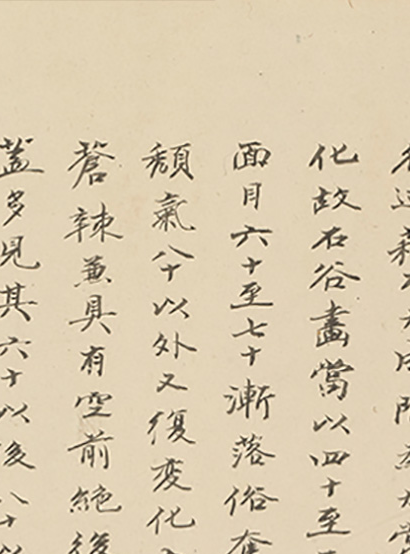 化故石谷畫當以四十至
面目六十至七十漸落俗
頹氣八十以外又復変化
蒼辣兼具有空前絕後
蓋多見其六十以後八十